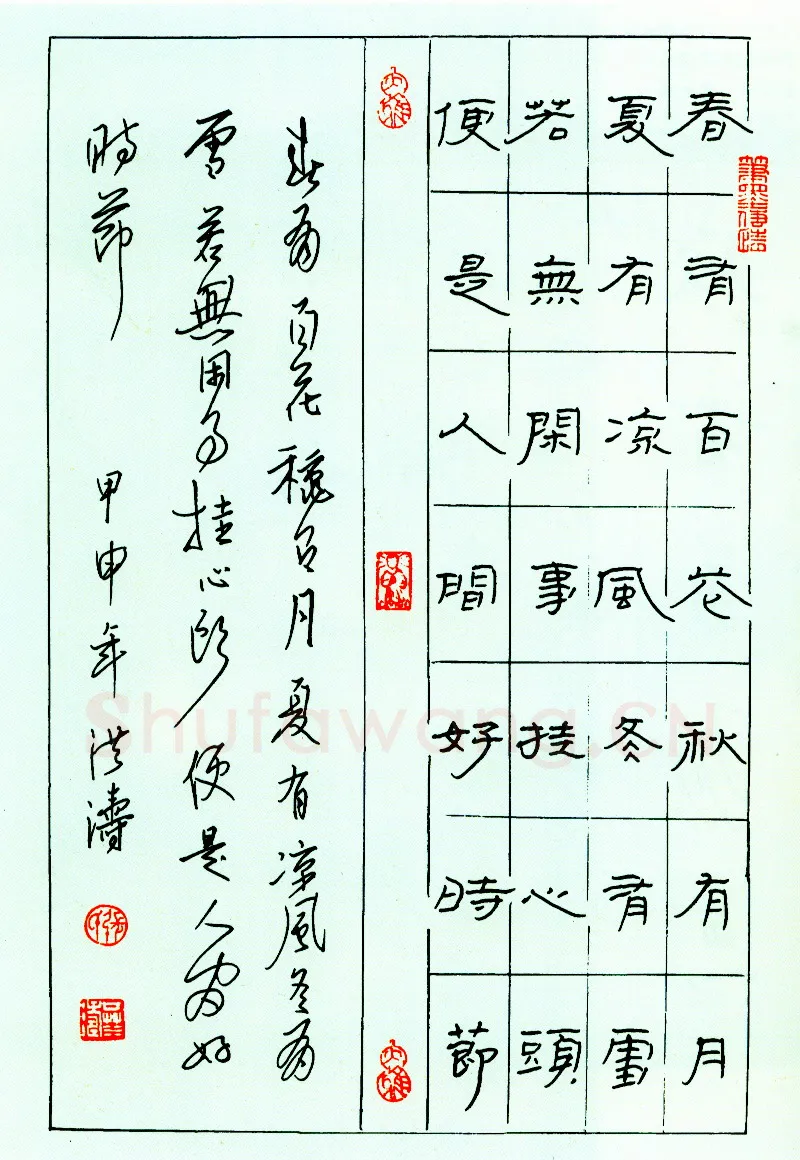 春有百花秋有月
夏有凉風冬有雪
若無閑事挂心頭
便是人間好時節
春有百花穐有月夏有凉風冬有
雪若無閑事挂心頭便是人間好
時節
甲申年洪濤
Shufawang.CN